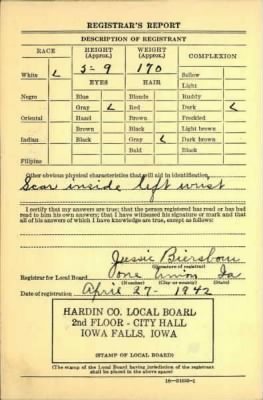 REGISTRAR'S REPORT
DESCRIPTION OF REGISTRANT
RACE HEIGHT (Approx.) WEIGHT (Approx.) COMPLEXION
5-9 170
White Sallow
EYES HAIR Light
Negro Blue Blonde Ruddy
Gray Red Dark
Oriental Hazel Brown Freckled
Brown Black Light brown
Indian Black Gray Dark brown
Bald Black
Filipino
Other obvious physical characteristics that will aid in identification
Scar inside left wrist
I certify that my answers are true; that the person registered has read or has had
read to him his own answers; that I have witnessed his signature or mark and that
all of his answers of which I have knowledge are true, except as follows:
Jessie
(Signature of registrar)
Registrar for Local Board one Union Ia
(Number) (City or county) (State)
Date of registration April 27 - 1942
HARDIN CO. LOCAL BOARD
2nd FLOOR - CITY HALL
IOWA FALLS, IOWA
(STAMP OF LOCAL BOARD)
(The stamp of the Local Board having jurisdiction of the registrant
shall be placed in the above space)